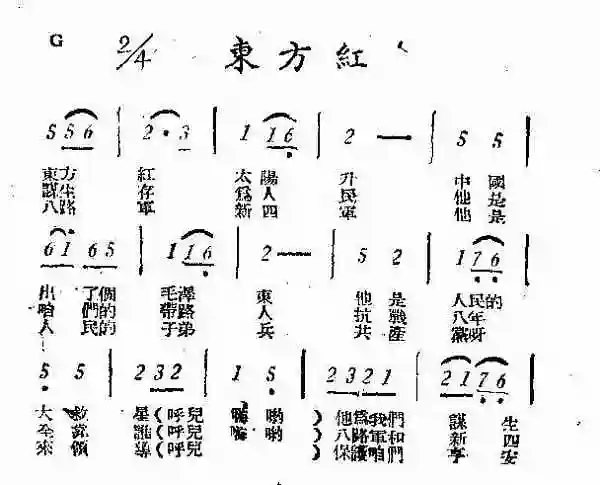 G 2/4 東方紅
5 56 | 2·3 | 1 16 | 2 — | 5 5
東方 紅 太陽 升 中國
謀生 存 爲人 民 他是
八路 軍 新四 軍 他是
61 65 | 1 16 | 2 — | 5 2 | 1 76
出了個 毛澤 東 他是 人民的
咱們的 帶路 人 抗戰 八年
人民的 子弟 兵 共產 黨呀
5 5 | 232 | 1 5 | 2321 | 21 76
大救 星(呼兒 嗨喲)他爲我們 謀生
全靠 誰(呼兒 嗨喲)八路軍和 新四
來領 導(呼兒 嗨喲)保護咱們 享安